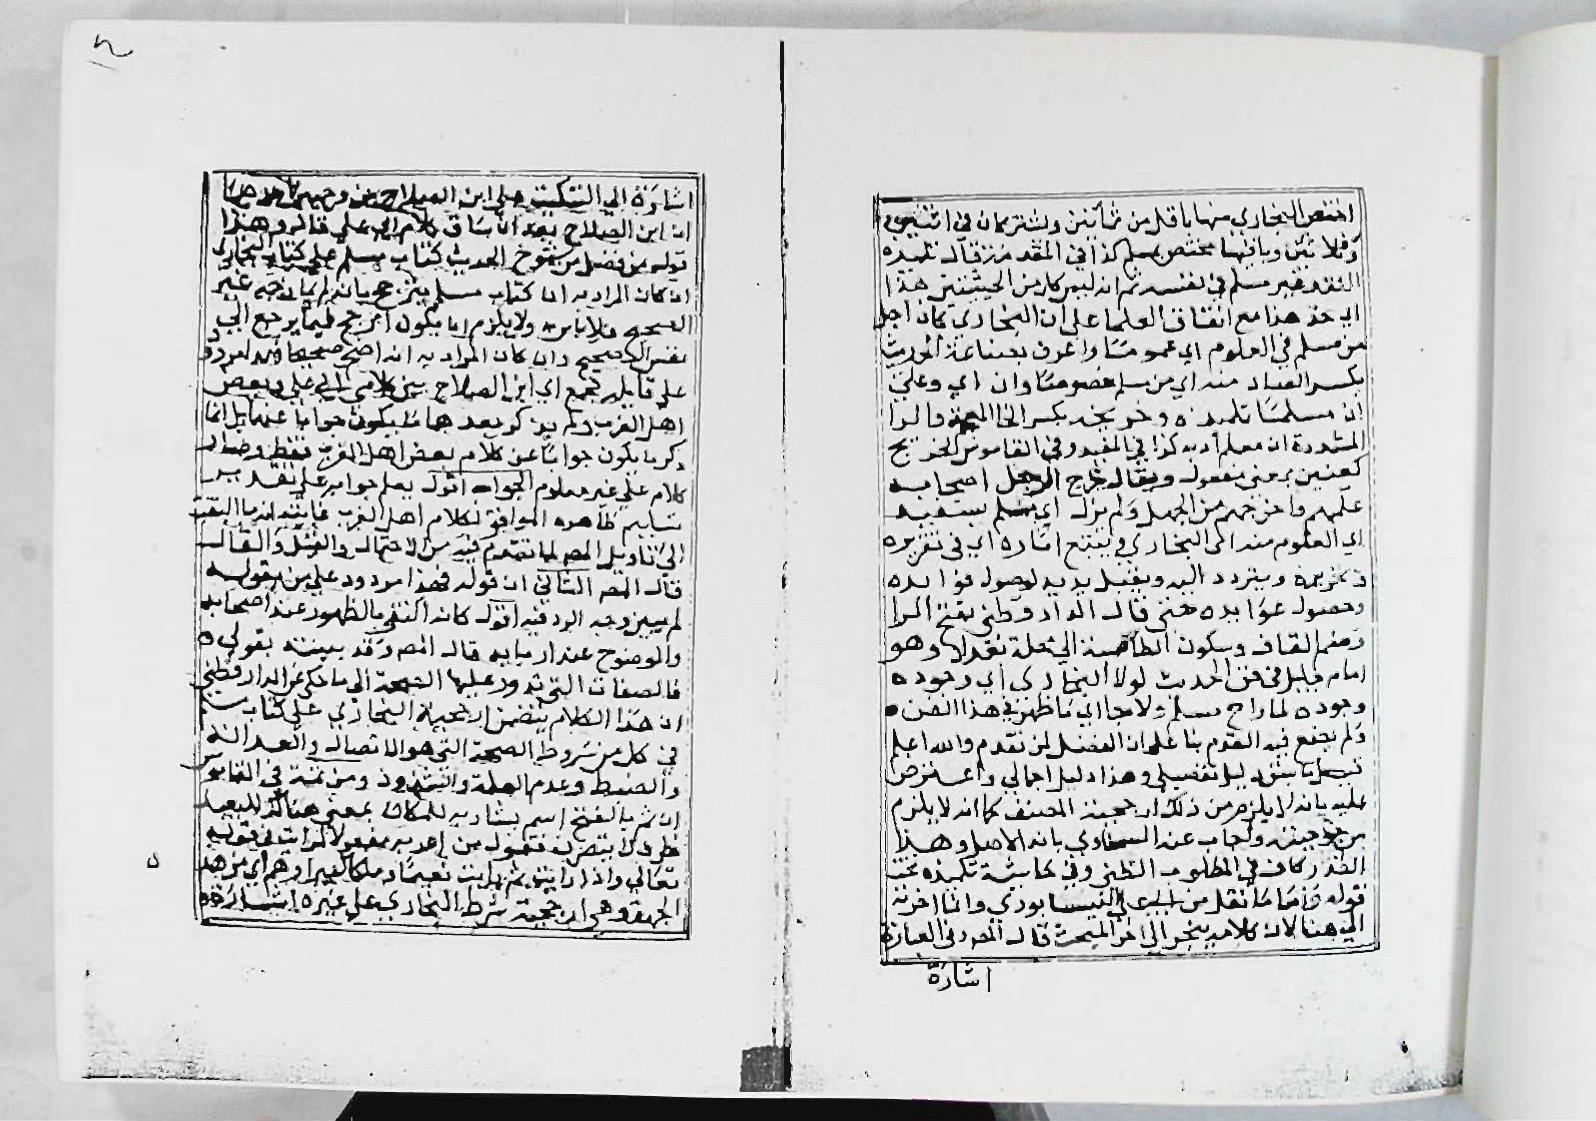 اختص البخاري منها باقل من ثمانين ويشتركان في اثنين
وثلاثين وباقيها مختص بمسلم كذا في المقدمة قال تلميذه
النقد فيه مسلم في نفسه ثم انه ليس كل من الحيثيتين هذا
اي خذ هذا مع اتفاق العلما على ان البخاري كان اجل
من مسلم في العلوم اي عموما واعرف بصناعة الحديث
بكسر الصاد منه اي من مسلم خصوصا وان اي وعلى
ان مسلما تلميذه وخريجه بكسر الخا المعجمة والرا
المشددة ان معلم ادبه كذا في المفيد وفي القاموس الخريج
كعنين بمعنى مفعول ويقال خرج الرجل اصحابه
علمهم واخرجهم من الجهل ولم يزل اي مسلم يستفيد
اي العلوم منه اي البخاري ويتبع اثاره اي في تقريره
وتحريره ويتردد اليه ويقبل يديه لوصول فوائده
وحصول عوايده حتى قال الدارقطني بفتح الرا
وضم القاف وسكون الطا نسبة الى محلة ببغداد وهو
امام جليل في فن الحديث لولا البخاري اي وجوده
وجوده لما راح مسلم ولا جا اي ما ظهر في هذا الفن
ولم يضع فيه القدم بنا على ان الفضل لمن تقدم والله اعلم
ما سبق دليل تفصيلي وهذا دليل اجمالي واعترض
عليه بانه لا يلزم من ذلك ارجحية المصنف كما انه لا يلزم
من مرجوحيته واجاب عنه السخاوي بانه الاصل وهذا
القدر كاف في المطلوب الظني وفي حاشية تلميذه تحت
قوله واما ما نقل عن ابي علي النيسابوري وانا اخرته
الى هنا لان كلامه ينجر الى اخر المبحث قال المص وفي العبارة
اشارة
اشارة الى التنكيت على ابن الصلاح من وجهين احدهما
ان ابن الصلاح بعد ان ساق كلام ابي علي قال وهذا
قول من فضل من شيوخ الحديث كتاب مسلم على كتاب البخاري
ان كان المراد به ان كتاب مسلم يترجح بانه لم يمازجه غير
الصحيح فلا باس به ولا يلزم ان يكون ارجح فيما يرجع الى
نفس الصحيح وان كان المراد به انه اصح صحيحا فهذا مردود
على قايله فجمع اي ابن الصلاح بين كلامي ابي علي وبعض
اهل الغرب ولم يذكر بعدهما ما يكون جوابا عنهما بل انما
ذكر ما يكون جوابا عن كلام بعض اهل الغرب فقط وصار
كلام ابي علي غير معلوم الجواب اقول يعلم جوابه على تقدير
تسليم ظاهره الموافق لكلام اهل الغرب غايته انه ما التفت
الى تاويل المص لما تقدم فيه من الاحتمال والقيل والقال
قال المص الثاني ان قوله فهذا مردود على من يقوله
لم يبين وجه الرد فيه اقول كانه اكتفى بالظهور عند اصحابه
والوضوح عند اربابه قال المص وقد بينته بقولي
فالصفات التي تدور عليها الصحة الى ما حكي عن الدارقطني
ان هذا الكلام يتضمن ارجحية البخاري على كتاب مسلم
في كل من شروط الصحة التي هو الاتصال والعدالة
والضبط وعدم العلة والشذوذ ومن ثمة في القاموس
ان ثم بالفتح اسم يشار به للمكان بمعنى هناك للبعيد
ظرف لا يتصرف فقول من اعربه مفعولا لرايت في قوله
تعالى واذا رايت ثم رايت نعيما وملكا كبيرا وهم اي من هذه
الجهة وهي ارجحية شرط البخاري على غيره اشارة